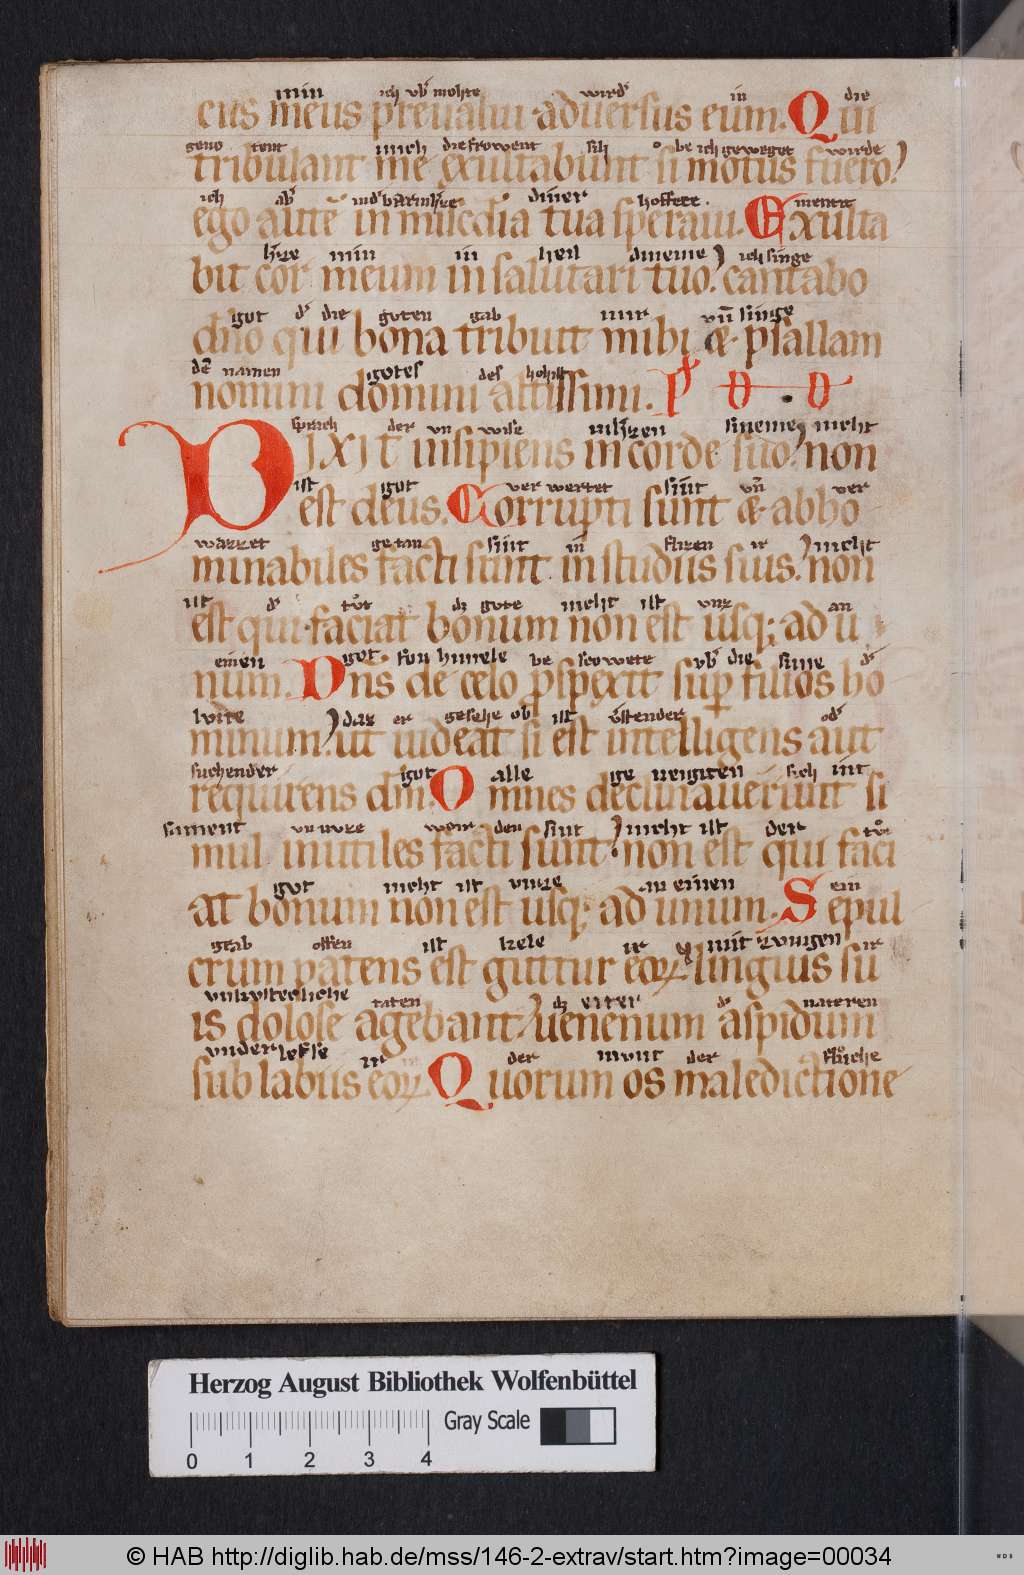 min ich vb' mohte wird' in die
cus meus preualui aduersus eum. Qui
geno tent mich die frowent sih be ich geweget wurde
tribulant me exultabunt si motus fuero
ich ab' diner hoffete mente
ego autē in misc̄dia tua speraui. Exulta
h'ze min in heil dineme ich singe
bit cor meum in salutari tuo. cantabo
got d' die goten gab mir vn̄ singe
dn̄o qui bona tribuit mihi & psallam
dē namen gotes des hohist
nomini domini altissimi. Ps D D
sprach der vn wise sineme nieht
DIXIT insipiens in corde suo. non
ist got ver wertet sint vn̄ ver
est deus. Corrupti sunt & abho
wazzet getan sint in flizen ir nieht
minabiles facti sunt in studiis suis. non
ist d' tůt dz gote nieht ist vnz an
est qui faciat bonum non est usq; ad u
einen got fon himele be scowete vb' die sune d'
num. Dn̄s de celo ꝓspexit sup filios ho
daz er gesehe ob ist v'stender od'
minum. ut uideat si est intelligens aut
suchender got alle ge neigten sich int
requirens dm̄. Omnes declinauerunt si
sament vnnuze worden sint nieht ist der tůt
mul inutiles facti sunt. non est qui faci
got nieht ist vnze an einen ein
at bonum non est usq; ad unum. Sepul
grab offen ist kele ir mit zungen ir
crum patens est guttur eoꝝ linguis su
taten dz eiter d' nateren
is dolose agebant. uenenum aspidum
vnder lefse ir der munt der flůche
sub labiis eoꝝ Quorum os maledictione
Herzog August Bibliothek Wolfenbüttel
Gray Scale
0 1 2 3 4
© HAB http://diglib.hab.de/mss/146-2-extrav/start.htm?image=00034